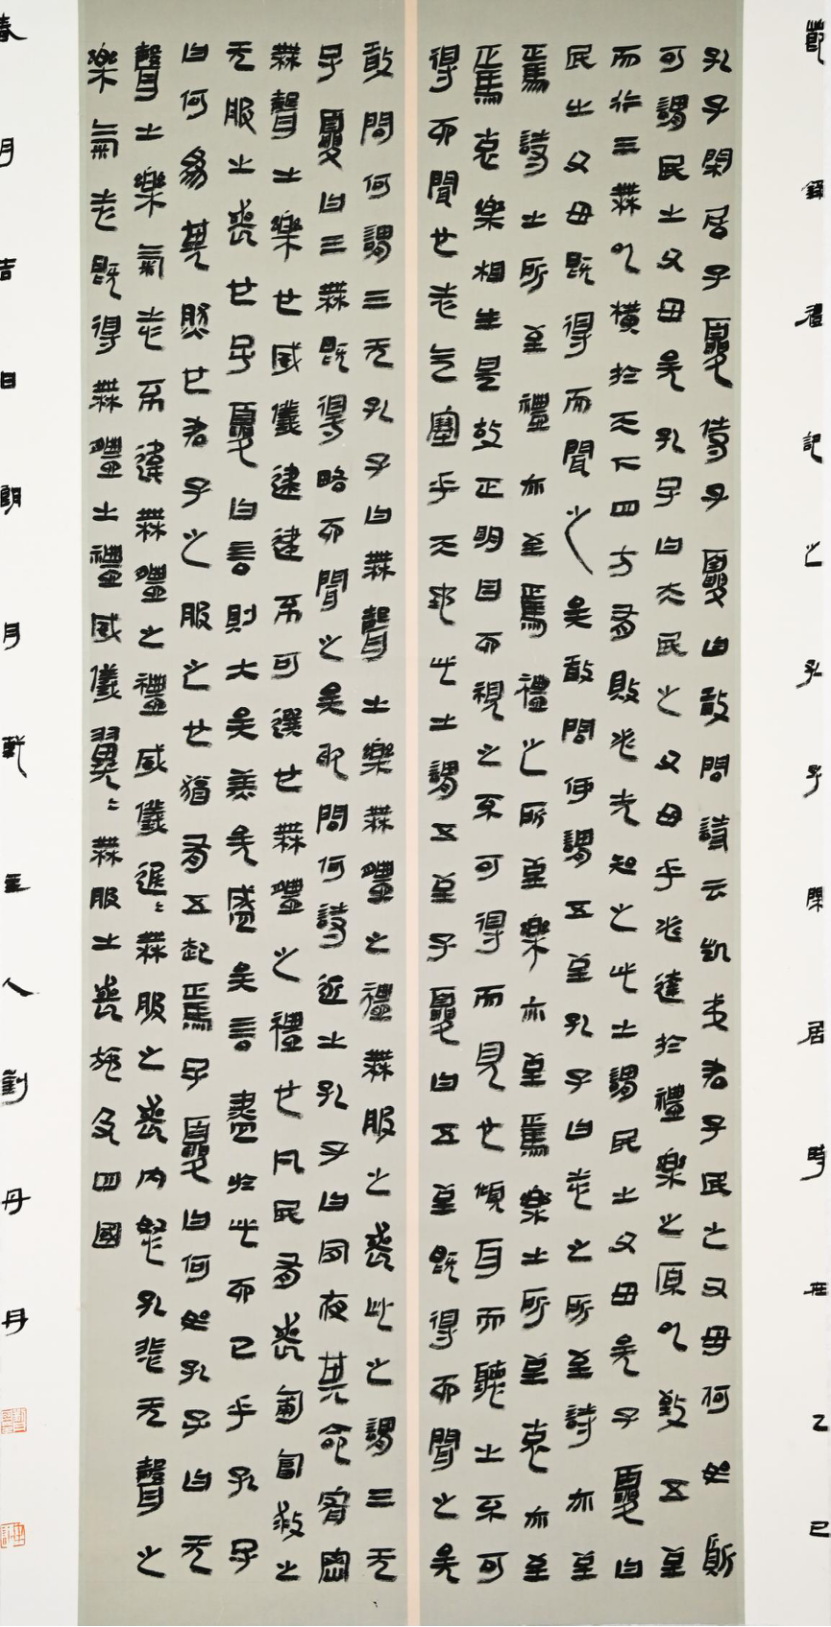 節錄禮記之孔子閑居時在乙巳
孔子閑居子夏侍子夏曰敢問詩云凱弟君子民之父母何如斯
可謂民之父母矣孔子曰夫民之父母乎必達於禮樂之原以致五至
而行三無以橫於天下四方有敗必先知之此之謂民之父母矣子夏曰
民之父母既得而聞之矣敢問何謂五至孔子曰志之所至詩亦至
焉詩之所至禮亦至焉禮之所至樂亦至焉樂之所至哀亦至
焉哀樂相生是故正明目而視之不可得而見也傾耳而聽之不可
得而聞也志气塞乎天地此之謂五至子夏曰五至既得而聞之矣
敢問何謂三无孔子曰無聲之樂無體之禮無服之喪此之謂三无
子夏曰三無既得略而聞之矣敢問何詩近之孔子曰夙夜其命宥密
無聲之樂也威儀逮逮不可選也無體之禮也凡民有喪匍匐救之
无服之喪也子夏曰言則大矣美矣盛矣言盡於此而已乎孔子
曰何為其然也君子之服之也猶有五起焉子夏曰何如孔子曰无
聲之樂氣志不違無體之禮威儀遲〻無服之喪內恕孔悲无聲之
樂氣志既得無體之禮威儀翼〻無服之喪施及四國
春月吉日朗月軒主人劉丹丹